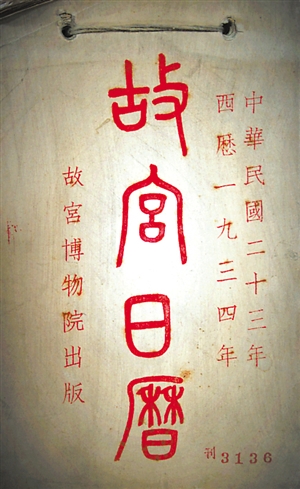 中華民國二十三年
西曆一九三四年
故宮日曆
故宮博物院出版
刊3136